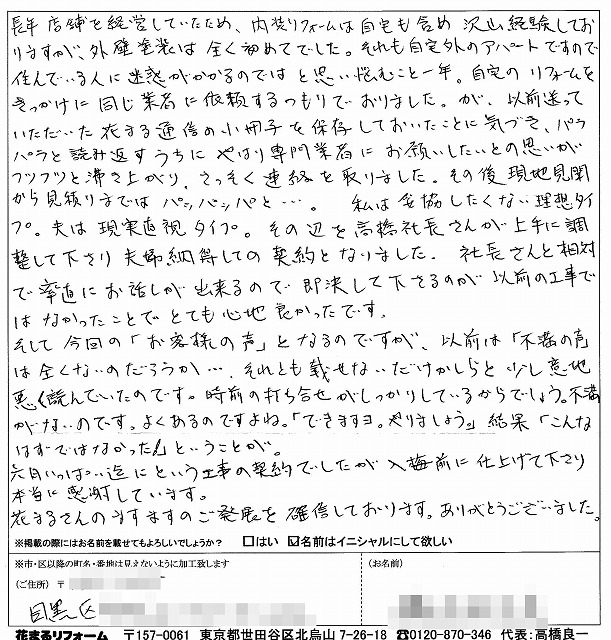 長年店舗を経営していたため、内装リフォームは自宅も含め沢山経験してお
りますが、外壁塗装は全く初めてでした。それも自宅外のアパートですので
住んでいる人に迷惑がかかるのではと思い悩むこと一年。自宅のリフォームを
きっかけに同じ業者に依頼するつもりでおりました。が、以前送って
いただいた花まる通信の小冊子を保存しておいたことに気づき、パラ
パラと読み返すうちにやはり専門業者にお願いしたいとの思いが
フツフツと沸き上がり、さっそく連絡を取りました。その後現地見聞
から見積りまではパッパッパと…。私は妥協したくない理想タイ
プ。夫は現実直視タイプ。その辺を高橋社長さんが上手に調
整して下さり夫婦納得しての契約となりました。社長さんと相対
で率直にお話しが出来るので即決して下さるのが以前の工事で
はなかったことでとても心地良かったです。
そして今回の「お客様の声」となるのですが、以前は「不満の声
は全くないのだろうか…。それとも載せないだけかしらと少し意地
悪く読んでいたのです。時前の打ち合せがしっかりしているからでしょう。不満
がないのです。よくあるのですよね。「できますヨ。やりましょう。」結果「こんな
はずではなかった！」ということが。
六月いっぱい迄にという工事の契約でしたが入梅前に仕上げて下さり
本当に感謝しています。
花まるさんのますますのご発展を確信しております。ありがとうございました。
※掲載の際にはお名前を載せてもよろしいでしょうか？ □はい ☑名前はイニシャルにして欲しい
※市・区以降の町名・番地は見えないように加工致します
（ご住所）〒
（お名前）
目黒区
花まるリフォーム 〒157-0061 東京都世田谷区北烏山 7-26-18 ☎0120-870-346 代表：高橋良一